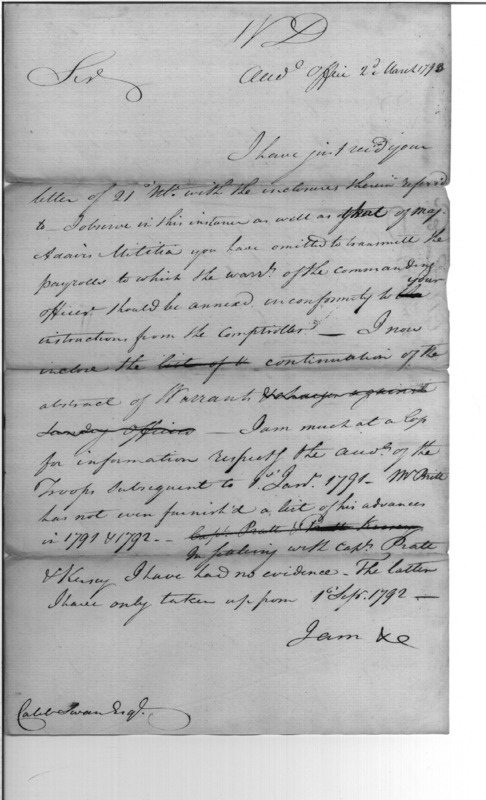 WD
Aud.d Office 2.d March 1793
Sir
I have just rec.d your
letter of 21.st Ult. with the inclosures therein refered
to — I observe in this instance as well as that of Maj.
Adairs Militia you have omitted to transmitt the
payrolls to which the warr.ts of the commanding
officer should be annexed in conformity to your
instructions from the Comptroller — I now
inclose the list of continuation of the
abstract of Warrants & charges against
Sunday officers — I am much at a loss
for information respect.g the acco.ts of the
Troops subsequent to 1.st Jan.y 1791 — Mr Britt
has not even furnish'd a list of his advances
in 1791 & 1792 — Cap.t Pratt & Kersey
In settling with Cap.t Pratt
& Kersey I have had no evidence — The latter
I have only taken up from 1.st Sep.t 1792 —
I am &c
Caleb Swan Esq.r